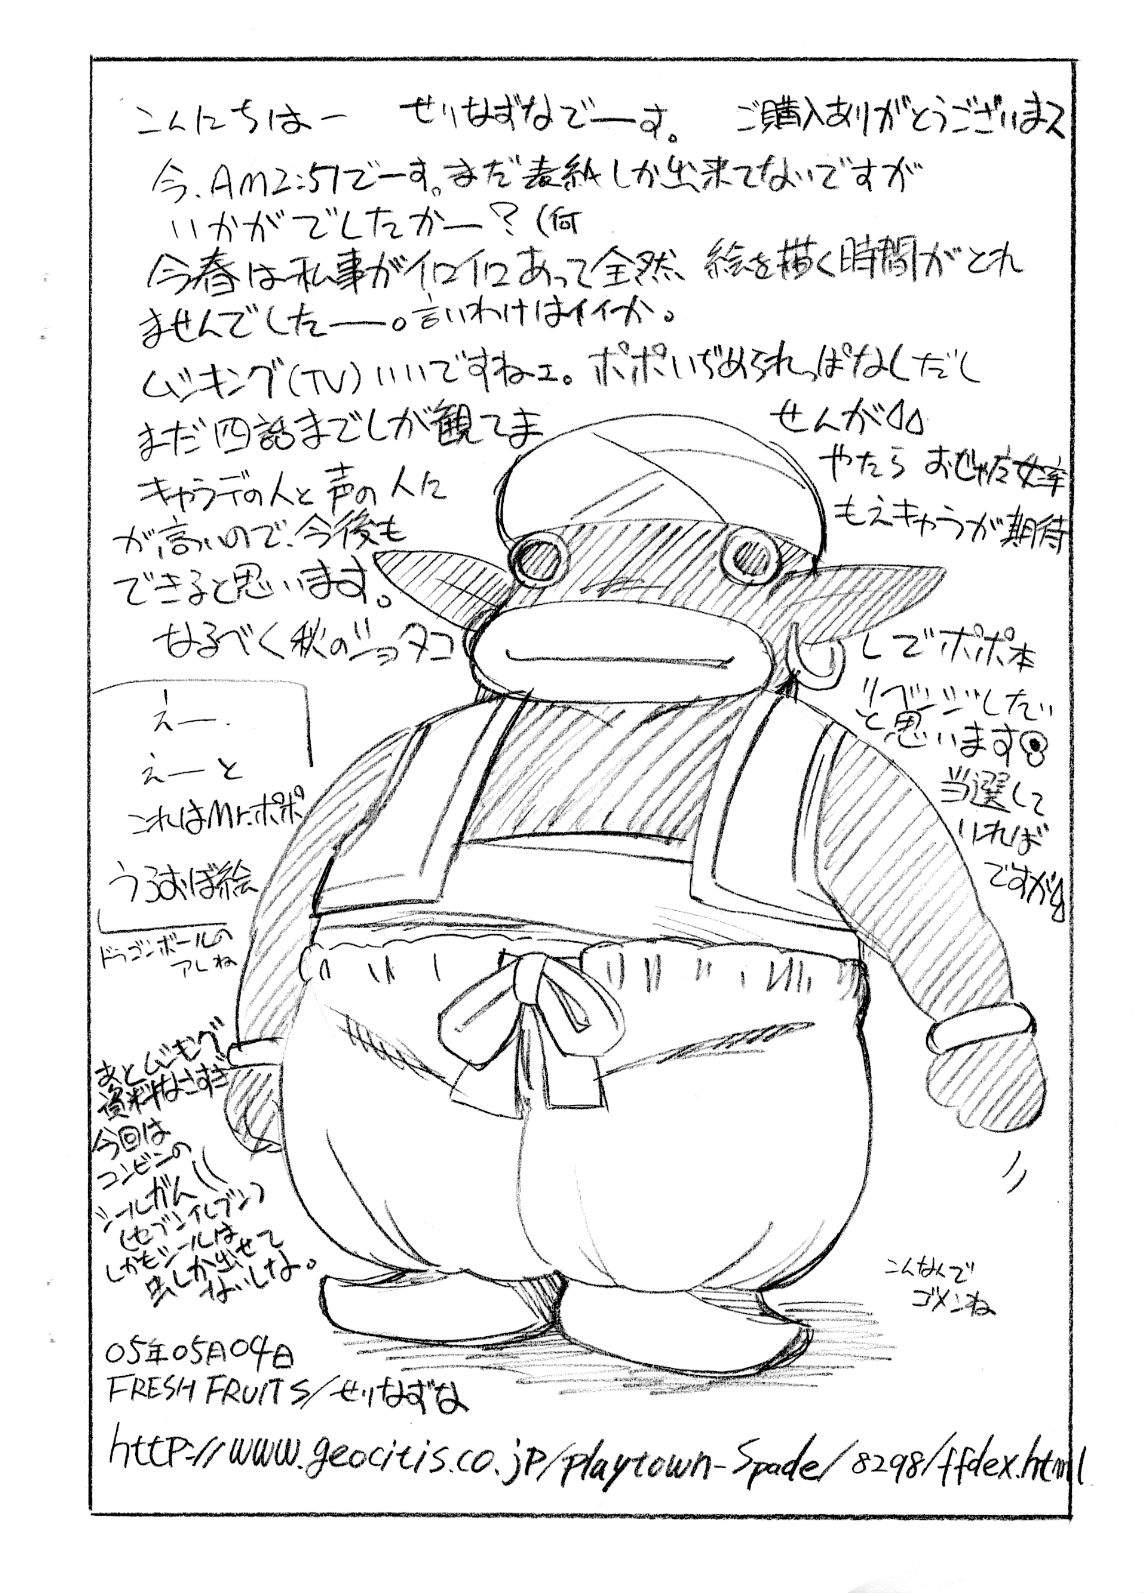 こんにちはー せりなずなでーす。 ご購入ありがとうございまス
今、AM2:51でーす。まだ表紙しか出来てないですが
いかがでしたかー?(何
今春は私事がイロイロあって全然、絵を描く時間がとれ
ませんでしたー。言いわけはイイか。
ムシキング(TV)いいですねェ。ポポいぢめられっぱなしだし
まだ四話までしか観てま
せんが
キャラデの人と声の人に
やたら おじゃ魔女率
が高いので、今後も
もえきゃらが期待
できると思います。
なるべく秋のショタコ
しでポポ本
リベンジしたい
と思います
当選して
いれば
ですが
えー.
えーと
これはMr.ポポ
うろおぼ絵
ドラゴンボールの
アレね
あとムシキング
資料なさすぎ
今回は
コンビニの
シールガム
(セブンイレブン)
しかもシールは
虫しか出せて
ないしな。
こんなんで
ゴメンね
05年05月04日
FRESH FRUITS/せりなずな
http://www.geocitis.co.jp/playtown-Spade/8298/ffdex.html